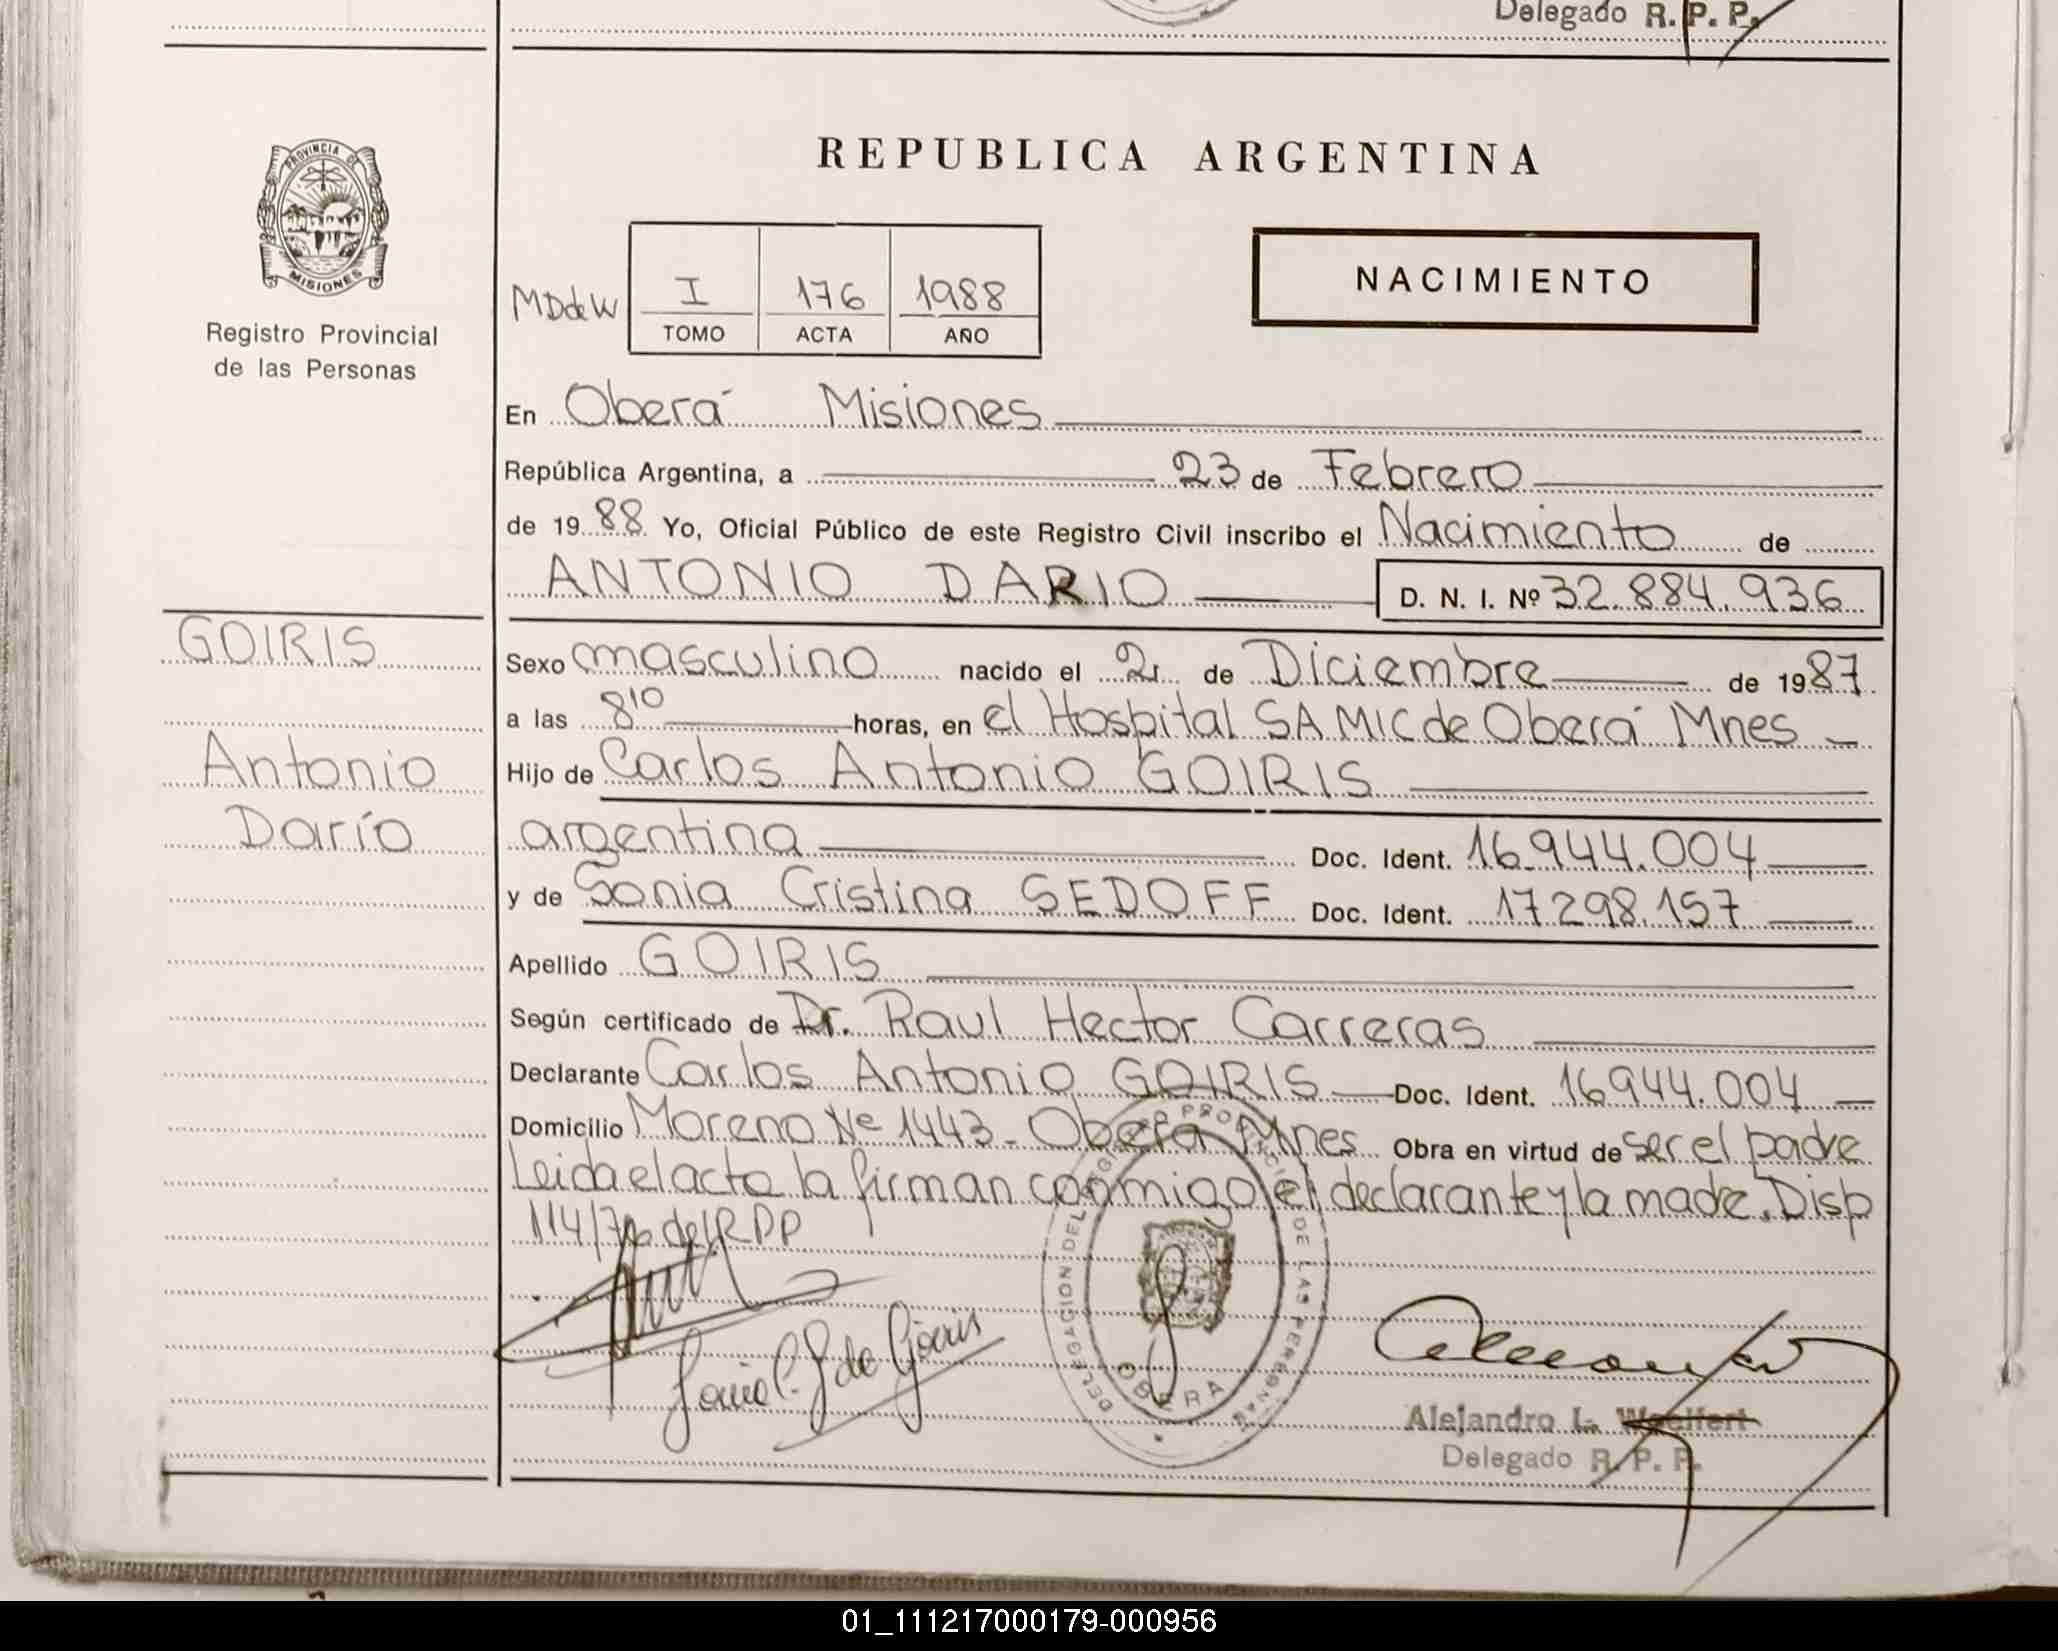 Delegado R. P. P.
PROVINCIA DE
MISIONES
Registro Provincial
de las Personas
REPUBLICA ARGENTINA
MDdeW
I 176 1988
TOMO ACTA AÑO
NACIMIENTO
En Oberá Misiones
República Argentina, a 23 de Febrero
de 1988 Yo, Oficial Público de este Registro Civil inscribo el Nacimiento de
ANTONIO DARIO D. N. I. Nº 32.884.936
GOIRIS
Antonio
Darío
Sexo masculino nacido el 2 de Diciembre de 1987
a las 8'10 horas, en el Hospital SAMIC de Oberá Mnes
Hijo de Carlos Antonio GOIRIS
argentina Doc. Ident. 16.944.004
y de Sonia Cristina SEDOFF Doc. Ident. 17298.157
Apellido GOIRIS
Según certificado de Dr. Raul Hector Carreras
Declarante Carlos Antonio GOIRIS Doc. Ident. 16944.004
Domicilio Moreno Nº 1443 - Oberá Mnes Obra en virtud de ser el padre
Leida el acta la firman conmigo el declarante y la madre. Disp
114/76 del RPP
Sonia C. S de Goiris
DELEGACION DEL REGISTRO PROVINCIAL DE LAS PERSONAS
OBERA
Alejandro L. Woelfert
Delegado R. P. P.
01_111217000179-000956